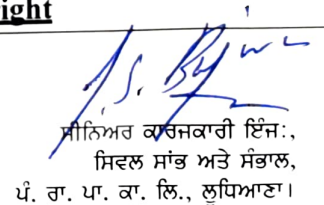 ight
ਸੀਨਿਅਰ ਕਾਰਜਕਾਰੀ ਇੰਜ:,
ਸਿਵਲ ਸਾਂਭ ਅਤੇ ਸੰਭਾਲ,
ਪੰ. ਰਾ. ਪਾ. ਕਾ. ਲਿ., ਲੁਧਿਆਣਾ।